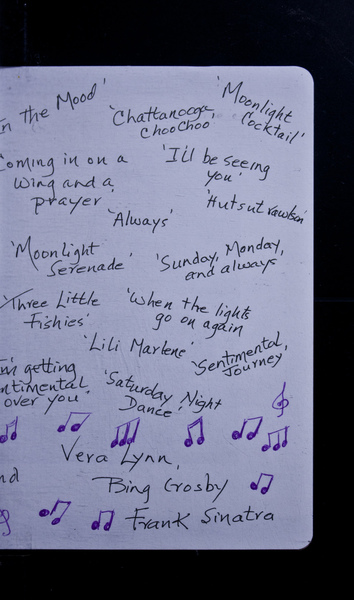 In the Mood'
'Chattanooga
ChooChoo'
'Moonlight
Cocktail'
Coming in on a
wing and a
prayer
'I'll be seeing
you'
'Hutsut rawlson'
'Always'
'Moonlight
Serenade'
'Sunday, Monday,
and always
Three Little
Fishies'
'When the lights
go on again
'Lili Marlene'
'Sentimental
Journey
I'm getting
ntimental
over you.'
'Saturday Night
Dance'
Vera Lynn,
nd
Bing Crosby
Frank Sinatra